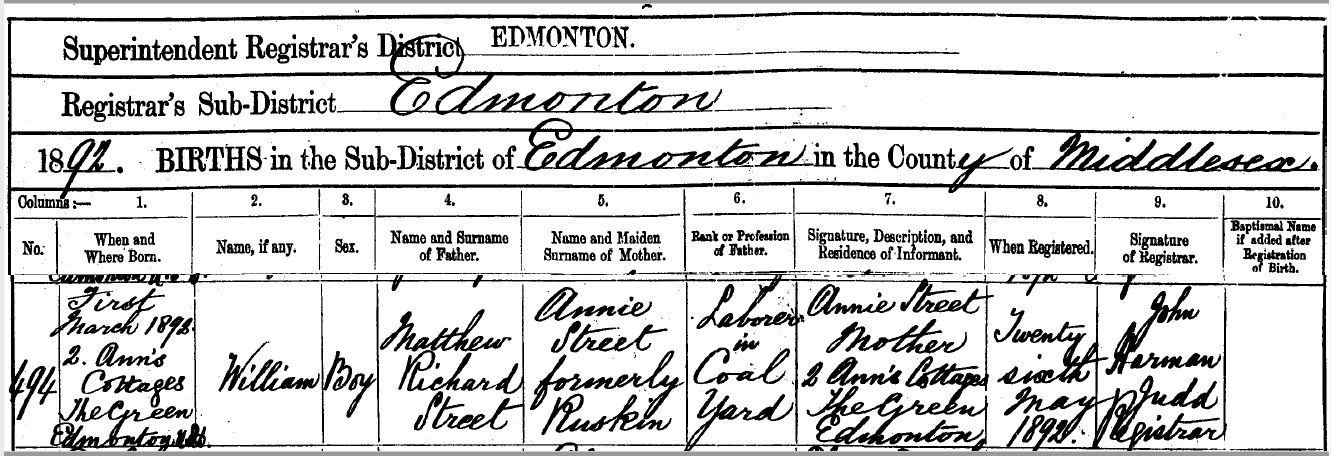 Superintendent Registrar's District EDMONTON.
Registrar's Sub-District Edmonton
1892. BIRTHS in the Sub-District of Edmonton in the County of Middlesex.
Columns:— 1. 2. 3. 4. 5. 6. 7. 8. 9. 10.
No. When and Where Born. Name, if any. Sex. Name and Surname of Father. Name and Maiden Surname of Mother. Rank or Profession of Father. Signature, Description, and Residence of Informant. When Registered. Signature of Registrar. Baptismal Name if added after Registration of Birth.
494
First
March 1892
2. Ann's
Cottages
The Green
Edmonton
William
Boy
Matthew
Richard
Street
Annie
Street
formerly
Ruskin
Laborer
in
Coal
Yard
Annie Street
Mother
2 Ann's Cottages
The Green
Edmonton
Twenty
sixth
May
1892.
John
Harman
Judd
Registrar